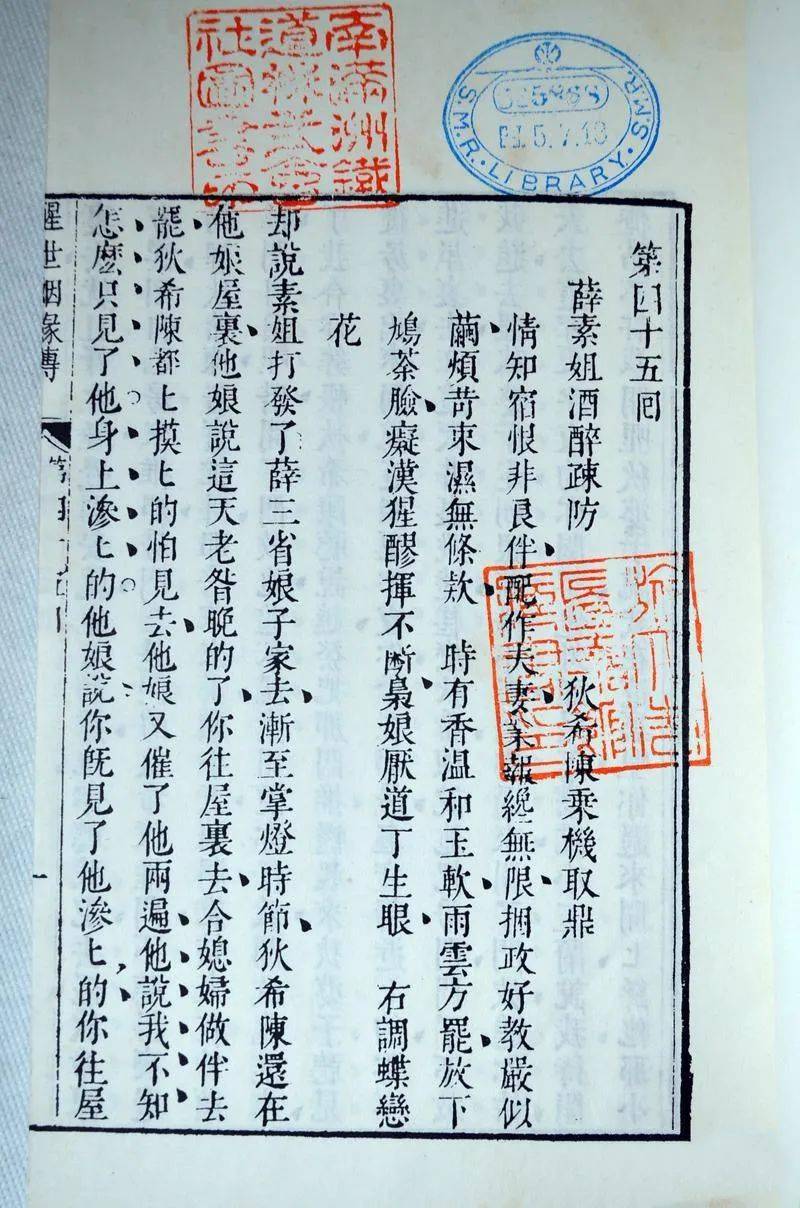 南滿洲鐵
道株式會
社圖書印
S.M.R. LIBRARY. S.M.R.
5.7.18
第四十五囘
薛素姐酒醉疎防　狄希陳乘機取鼎
情知宿恨非良伴、配作夫妻、業報緫無限、捆政好教嚴似
繭、煩苛束濕無條款、　時有香溫和玉軟、雨雲方罷、放下
鳩茶臉、癡漢猩醪揮不斷、梟娘厭道丁生眼、　右調蝶戀
花
却說素姐打發了薛三省娘子家去、漸至掌燈時節、狄希陳還在
他娘屋裏、他娘說這天老昝晚的了、你往屋裏去、合媳婦做伴去
罷、狄希陳都匕摸匕的怕見去、他娘又催了他兩遍、他說我不知
怎麽只見了他身上滲匕的。他娘說你旣見了他滲匕的、你往屋
醒世姻緣傳